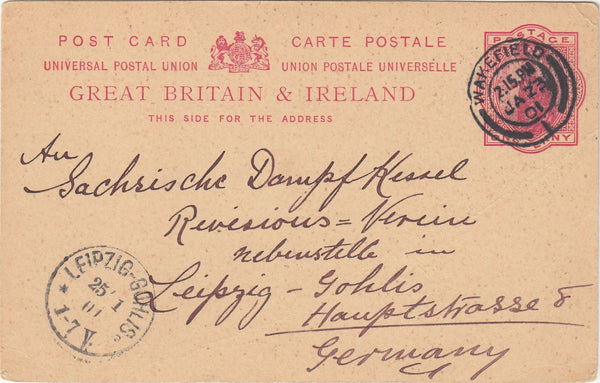 POST CARD CARTE POSTALE
UNIVERSAL POSTAL UNION UNION POSTALE UNIVERSELLE
GREAT BRITAIN & IRELAND
THIS SIDE FOR THE ADDRESS
POSTAGE
ONE PENNY
WAKEFIELD
2.15 PM
JA
01
An
Sachsische Dampf Kessel
Revisions=Verein
nebenstelle in
Leipzig-Gohlis
Hauptstrasse 8
Germany
* LEIPZIG-GOHLIS
25 1
01
1-7 V